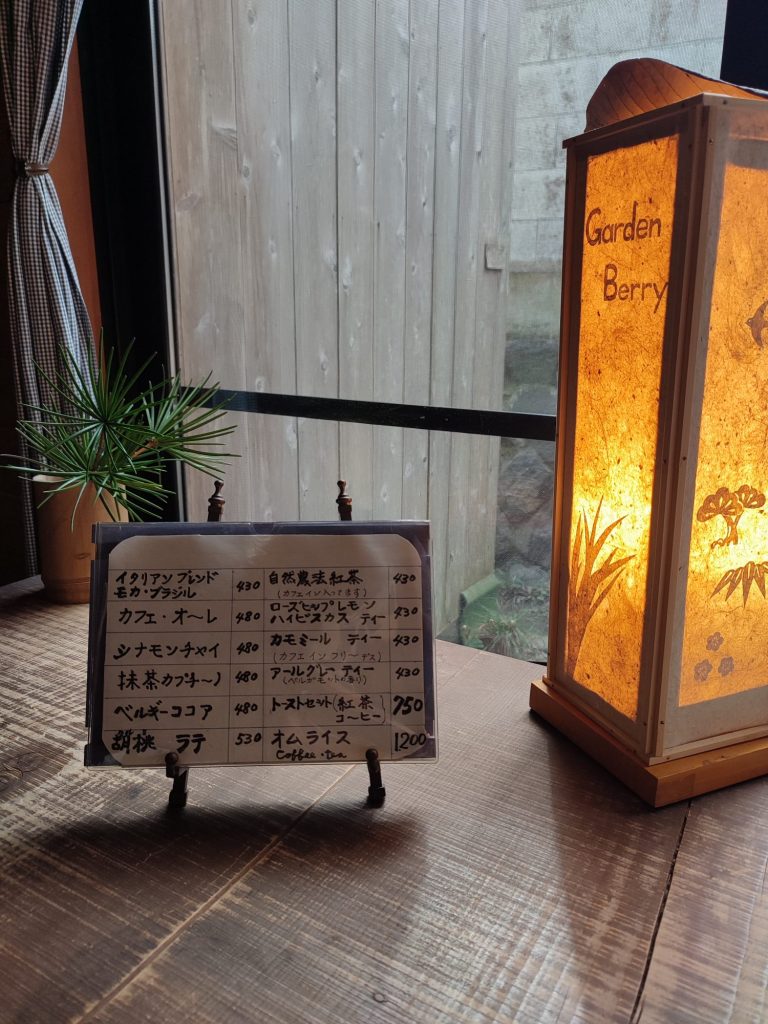 Garden
Berry
イタリアン ブレンド
モカ・ブラジル 430
カフェ・オ〜レ 480
シナモンチャイ 480
抹茶カプチ〜ノ 480
ベルギーココア 480
胡桃 ラテ 530
自然農法紅茶 430
(カフェイン入ってます)
ローズヒップレモン
ハイビスカス ティー 430
カモミール ティー 430
(カフェイン フリーデス)
アールグレーティー 430
(ベルガモットの香り)
トーストセット(紅茶 コ〜ヒー) 750
オムライス 1200
Coffee・tea